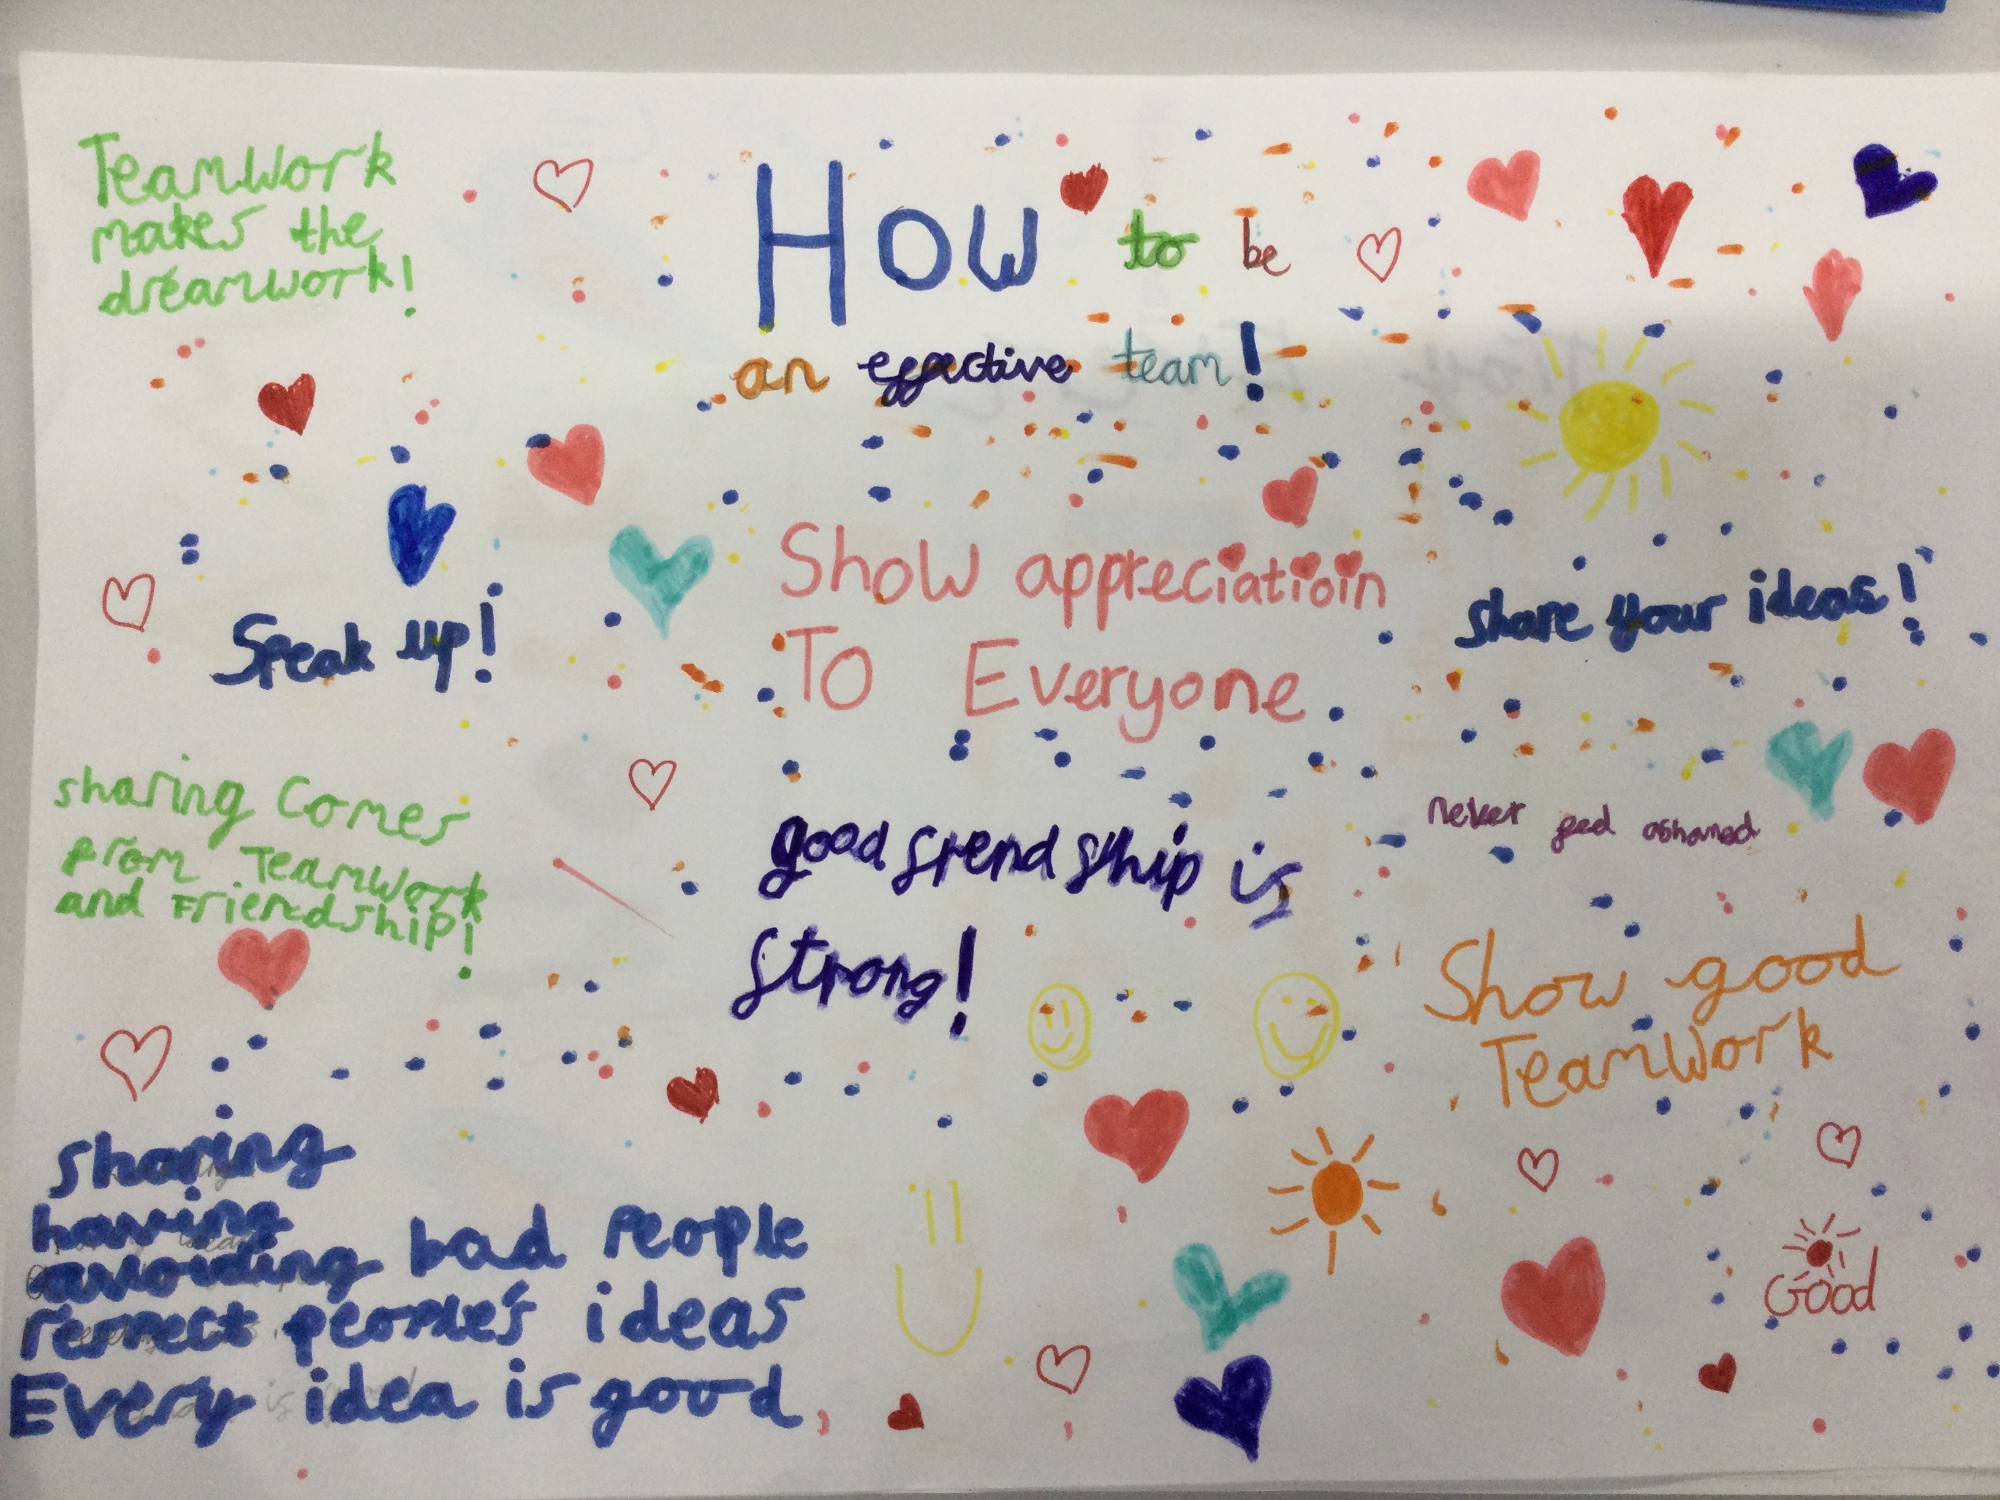 TeamWork
makes the
dreamwork!
How to be
an effective team!
Speak up!
Show appreciatioin
To Everyone
share your ideas!
sharing Comes
from TeamWork
and Friendship!
good frendship is
strong!
never feel ashamed
Show good
TeamWork
Sharing
having
avoiding bad People
respect people's ideas
Every idea is good
Good